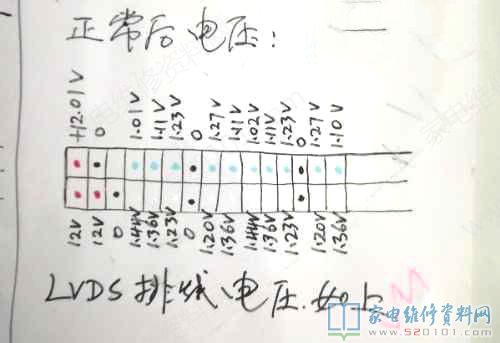 正常后电压：
+12.01V 0 1.01V 1.11V 1.23V 0 1.27V 1.11V 1.02V 1.11V 1.23V 0 1.27V 1.10V
12V 12V 0 1.44V 1.36V 1.23V 0 1.20V 1.36V 1.44V 1.36V 1.23V 1.20V 1.36V
LVDS排线电压如上
家电维修资料网
www.520101.com